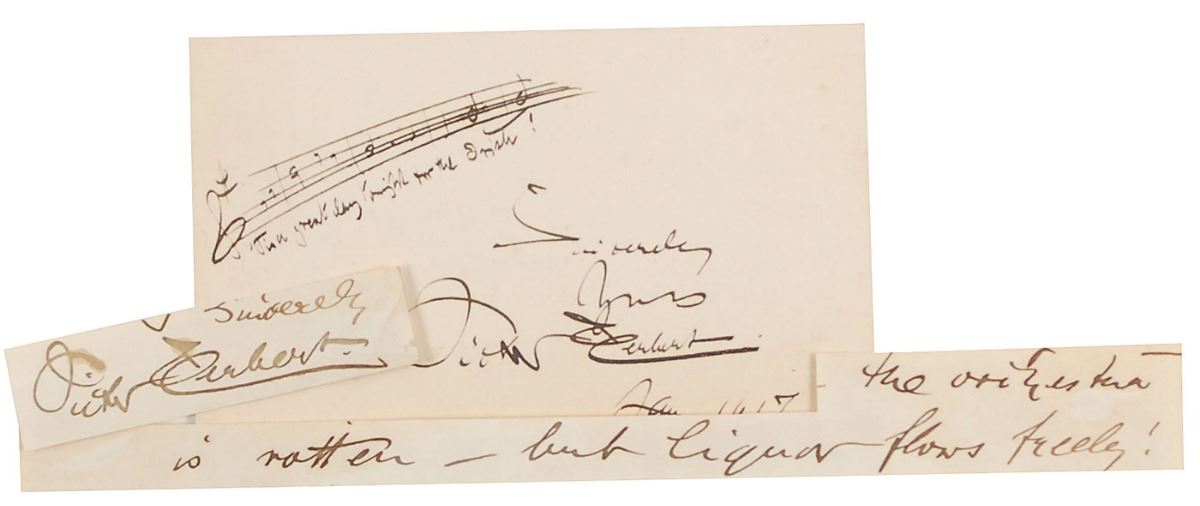 'Tis a great day tonight for the Irish!
Sincerely
Yours
Victor Herbert
Sincerely
Victor Herbert.
the orchestra
is rotten – but liquor flows freely!